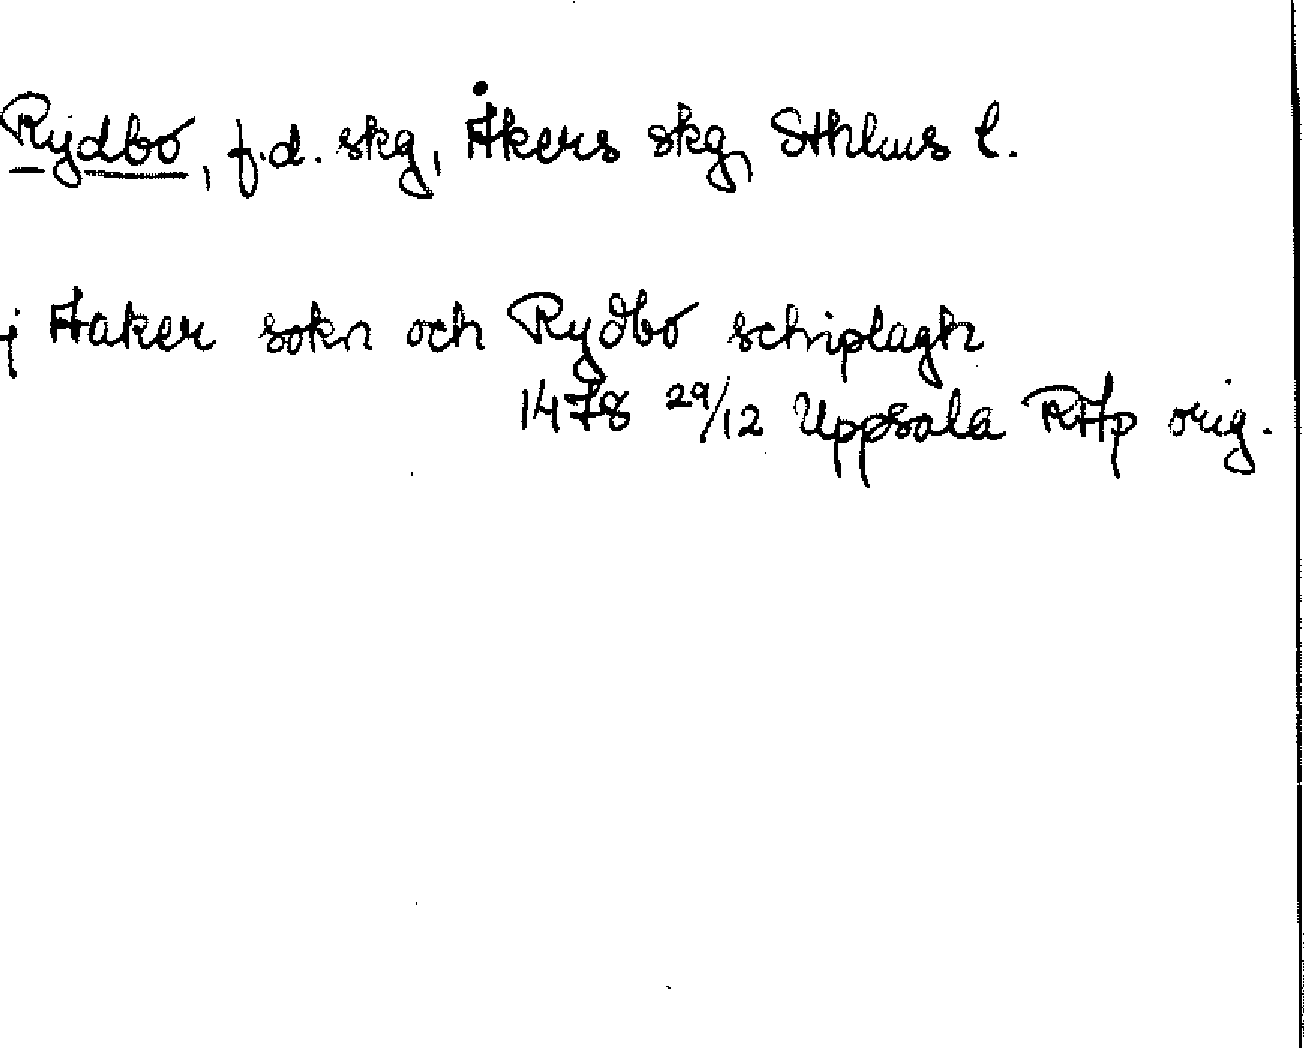 Rydbo, f.d. skg, Åkers skg, Sthlms l.
j Aaker sokn och Rydbo schiplagh
1478 29/12 Uppsala RAp orig.